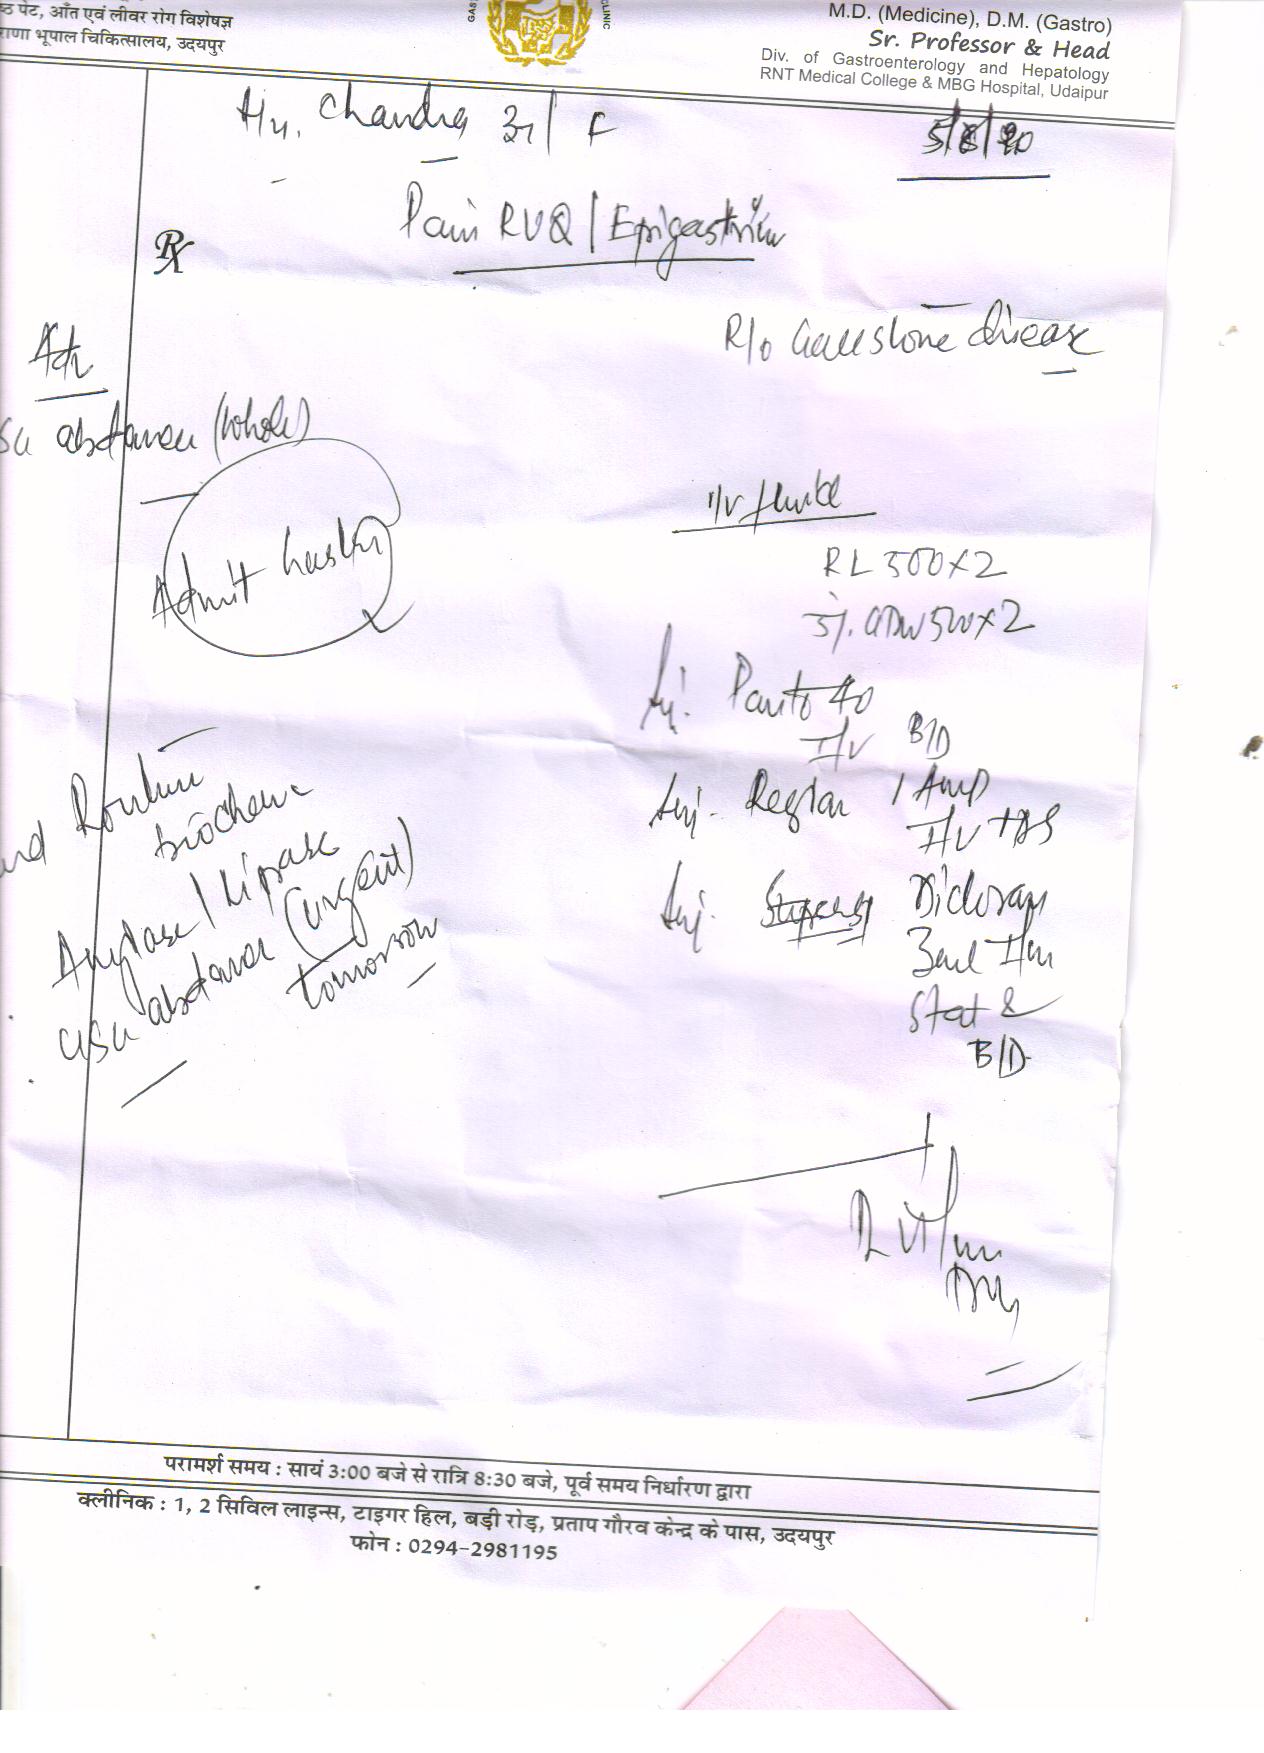 ष्ठ पेट, आँत एवं लीवर रोग विशेषज्ञ
राणा भूपाल चिकित्सालय, उदयपुर
GAS
CLINIC
M.D. (Medicine), D.M. (Gastro)
Sr. Professor & Head
Div. of Gastroenterology and Hepatology
RNT Medical College & MBG Hospital, Udaipur
Chandra / F
Pain RUQ / Epigastrium
Rx
R/o Gallstone disease
Adv
abdomen (whole)
Admit
I/v fluid
RL 500x2
5%. 500x2
Inj. Panto 40
I/V B/D
Inj. Reglan 1 Amp
I/V TDS
Inj. Dicloran
3ml I/m
Stat &
B/D
Routine
biochem
Amylase / Lipase
USG abdomen (urgent)
tomorrow
परामर्श समय : सायं 3:00 बजे से रात्रि 8:30 बजे, पूर्व समय निर्धारण द्वारा
क्लीनिक : 1, 2 सिविल लाइन्स, टाइगर हिल, बड़ी रोड़, प्रताप गौरव केन्द्र के पास, उदयपुर
फोन : 0294-2981195